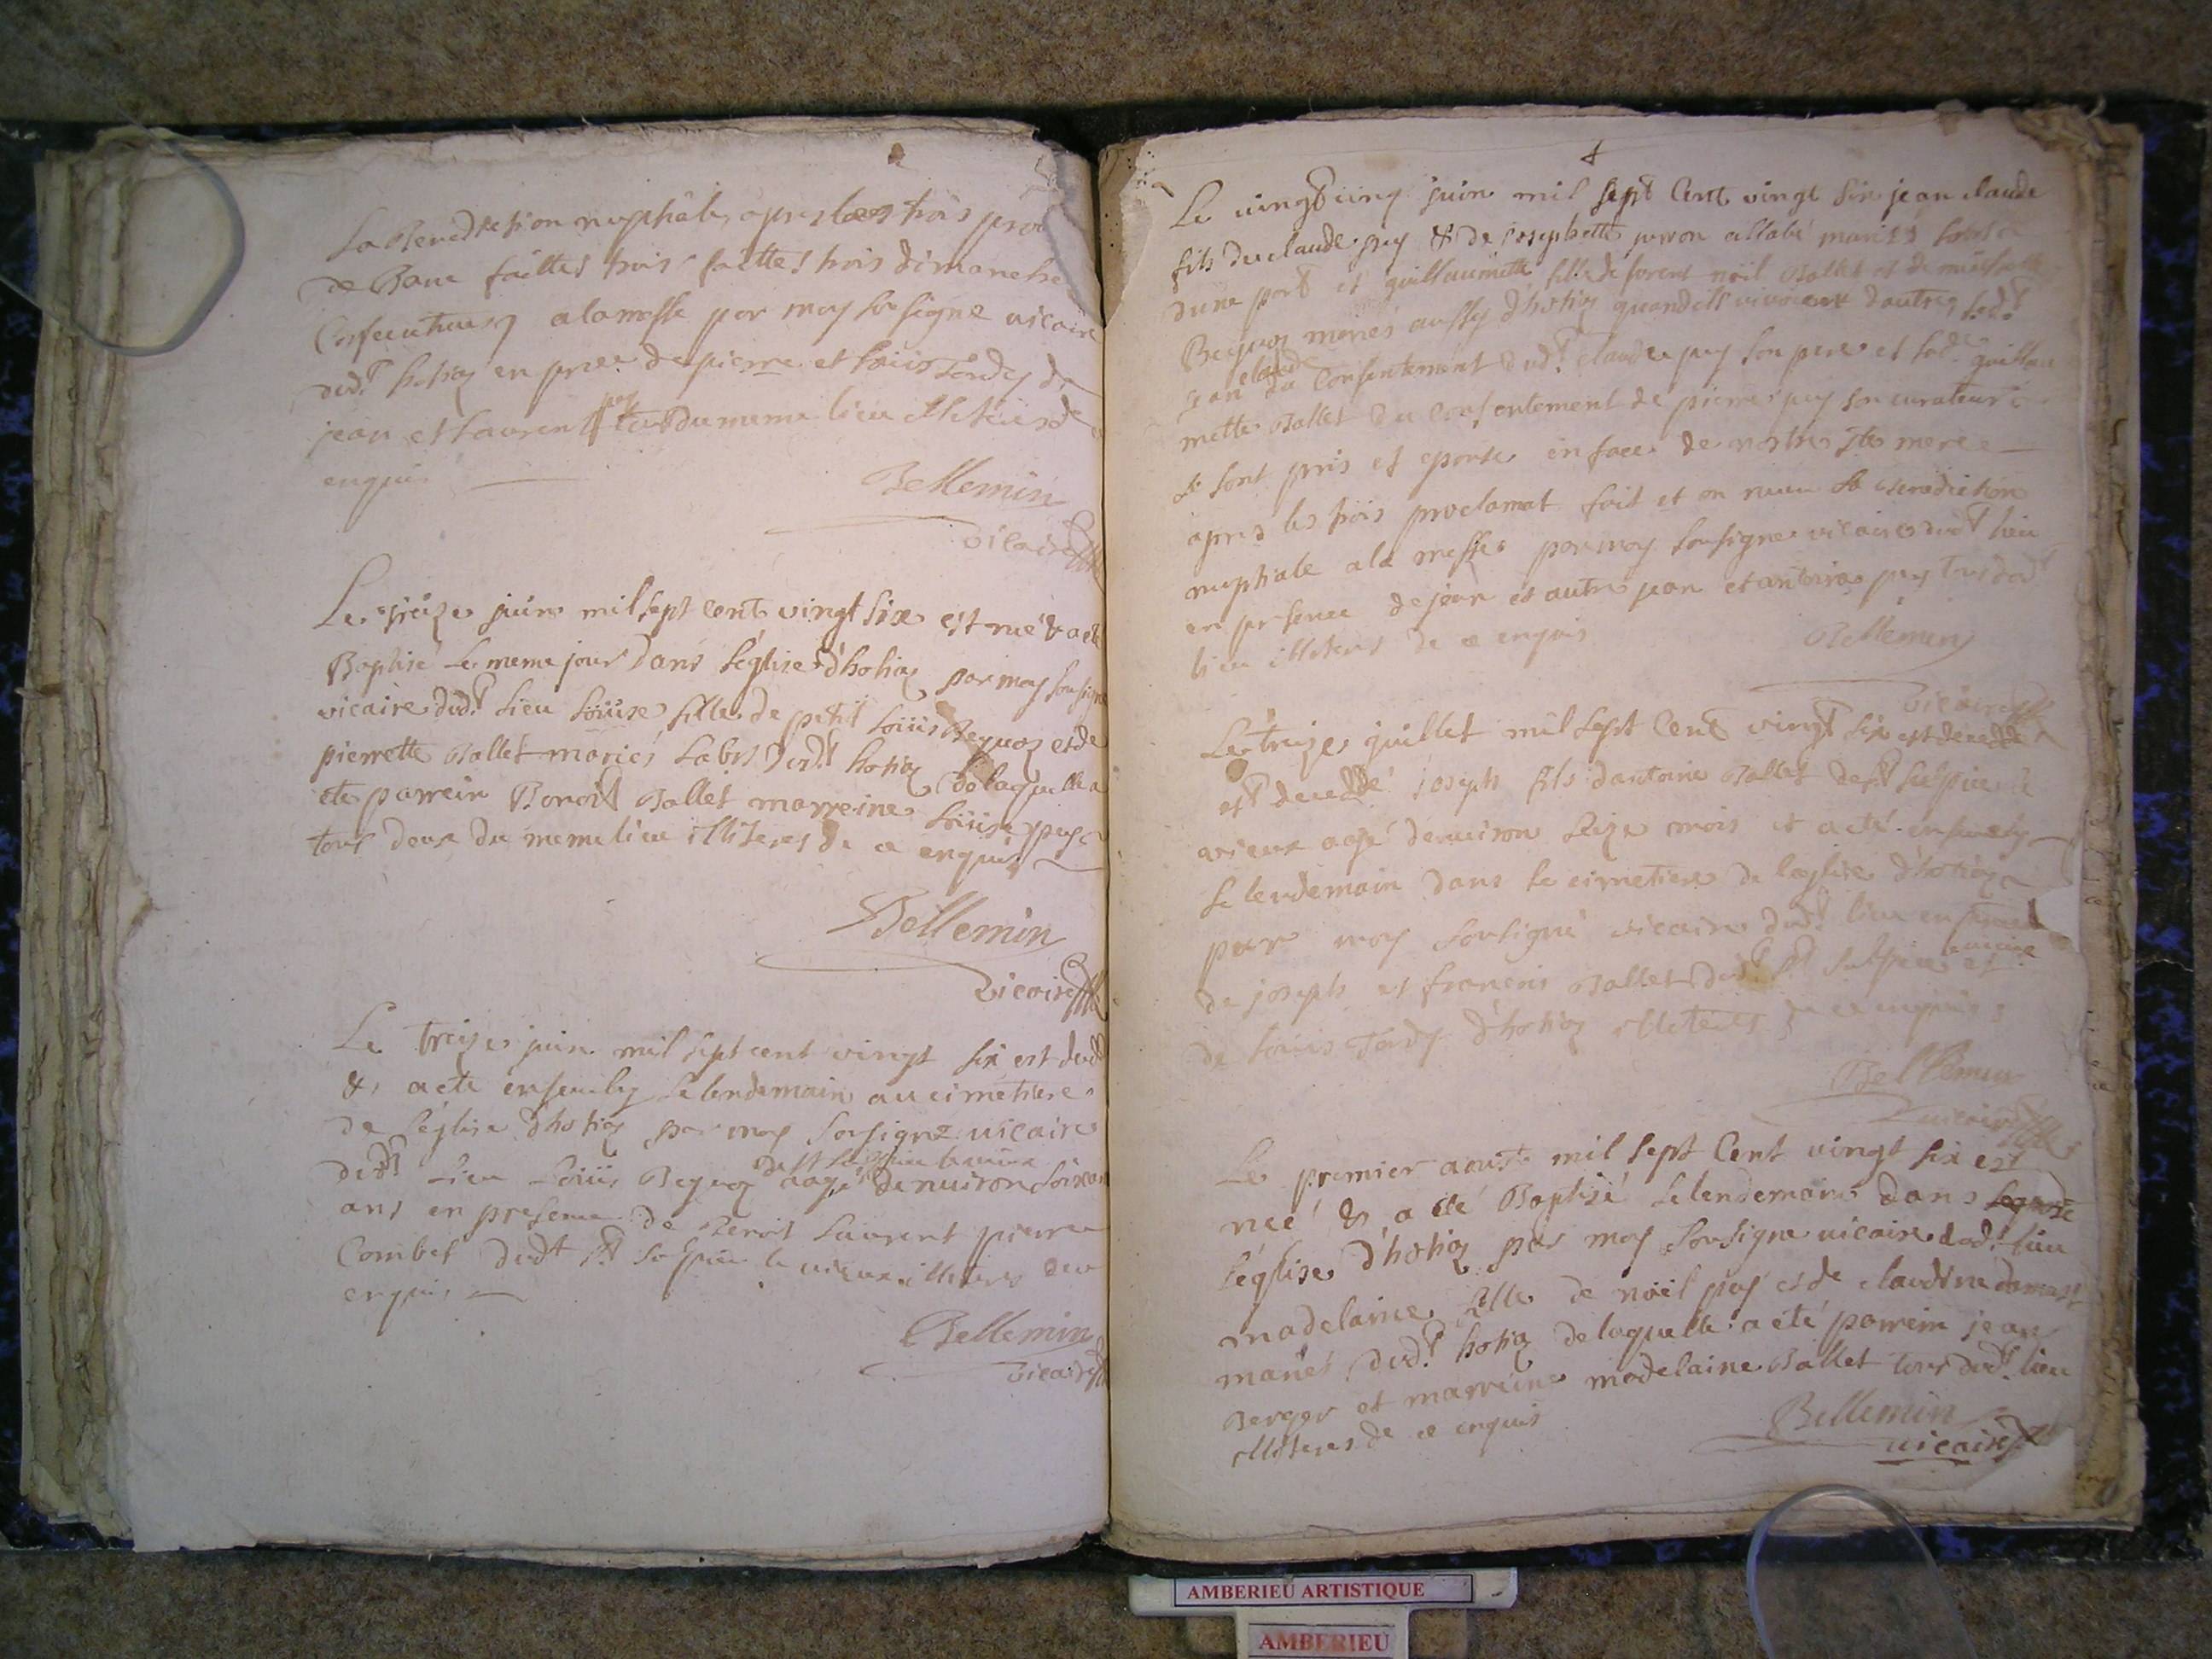 La Benediction nuptiale apres les trois pro
de Banc faittes trois faittes trois dimanche
Consecutius a la messe par moy sousigne vicaire
dud.t hotiaz en pnce de pierre et Loüis Tardy de
jean et Laurent puy tous du meme lieu illeterés de
enquis
Bellemin
vicaire
Le treize juin mil sept cent vingt six est née & a été
Baptisé le meme jour dans l'eglise d'hotiaz par moy sousigne
vicaire dud.t Lieu Loüise fille de petit Loüis Bequoz et de
pierrette Ballet mariés Labrs dud.t hotiaz de laquelle a
ete parrein Benoit Ballet marreine Loüise puy
tous deux du meme lieu illiteres de ce enquis
Bellemin
Vicaire
Le treize juin mil sept cent vingt six est
& a ete ensevely le lendemain au cimetiere
de l'eglise d'hotiaz par moy sousigne vicaire
dud.t Lieu Loüis Bequoz de st sulpice le vieux aagé d'enuiron soixan
ans en presence de Benoit Laurent pierre
Combet dud.t st sulpice le vieux illiteres de ce
enquis
Bellemin
vicaire
Le vingt cinq juin mil sept Cent vingt six jean claude
fils de claude puy & de Josephette juvron allabé mariés
dune part et guillaumette fille de noël Ballet et de
Bequoz mariés aussy d'hotiaz quand ils viuoient dautres led.t
jean claude du Consentement dud.t claude puy son pere et lad.e guillau
mette Ballet du consentement de pierre puy son curateur
se sont pris et epouse en face de nostre ste mere
apres les trois proclamat fait et on la Benediction
nuptiale a la messe par moy sousigne vicaire dud.t lieu
en presence de jean et autre jean et antoine puy tous dud.t
lieu illeteres de ce enquis
Bellemin
vicaire
Le treize juillet mil sept Cent vingt six est decedde
est deceddé joseph fils d'antoine Ballet de st sulpice le
vieux agé d'enuiron seize mois et a eté ensevely
le lendemain dans le cimetiere de l'eglise d'hotiaz
par moy sousigné vicaire dud.t lieu en presence
de joseph et francois Ballet dud.t st sulpice le vieux et
de Loüis Tardy d'hotiaz illeteres de ce enquis
Bellemin
vicaire
Le premier aoust mil sept Cent vingt six est
née & a eté Baptisé le lendemain dans
l'eglise d'hotiaz par moy sousigne vicaire dud.t lieu
madelaine fille de noël puy et de claudine
mariés dud.t hotiaz de laquelle a eté parrein jean
Berger et marreine madelaine Ballet tous dud.t lieu
illiteres de ce enquis
Bellemin
vicaire
AMBERIEU ARTISTIQUE
AMBERIEU